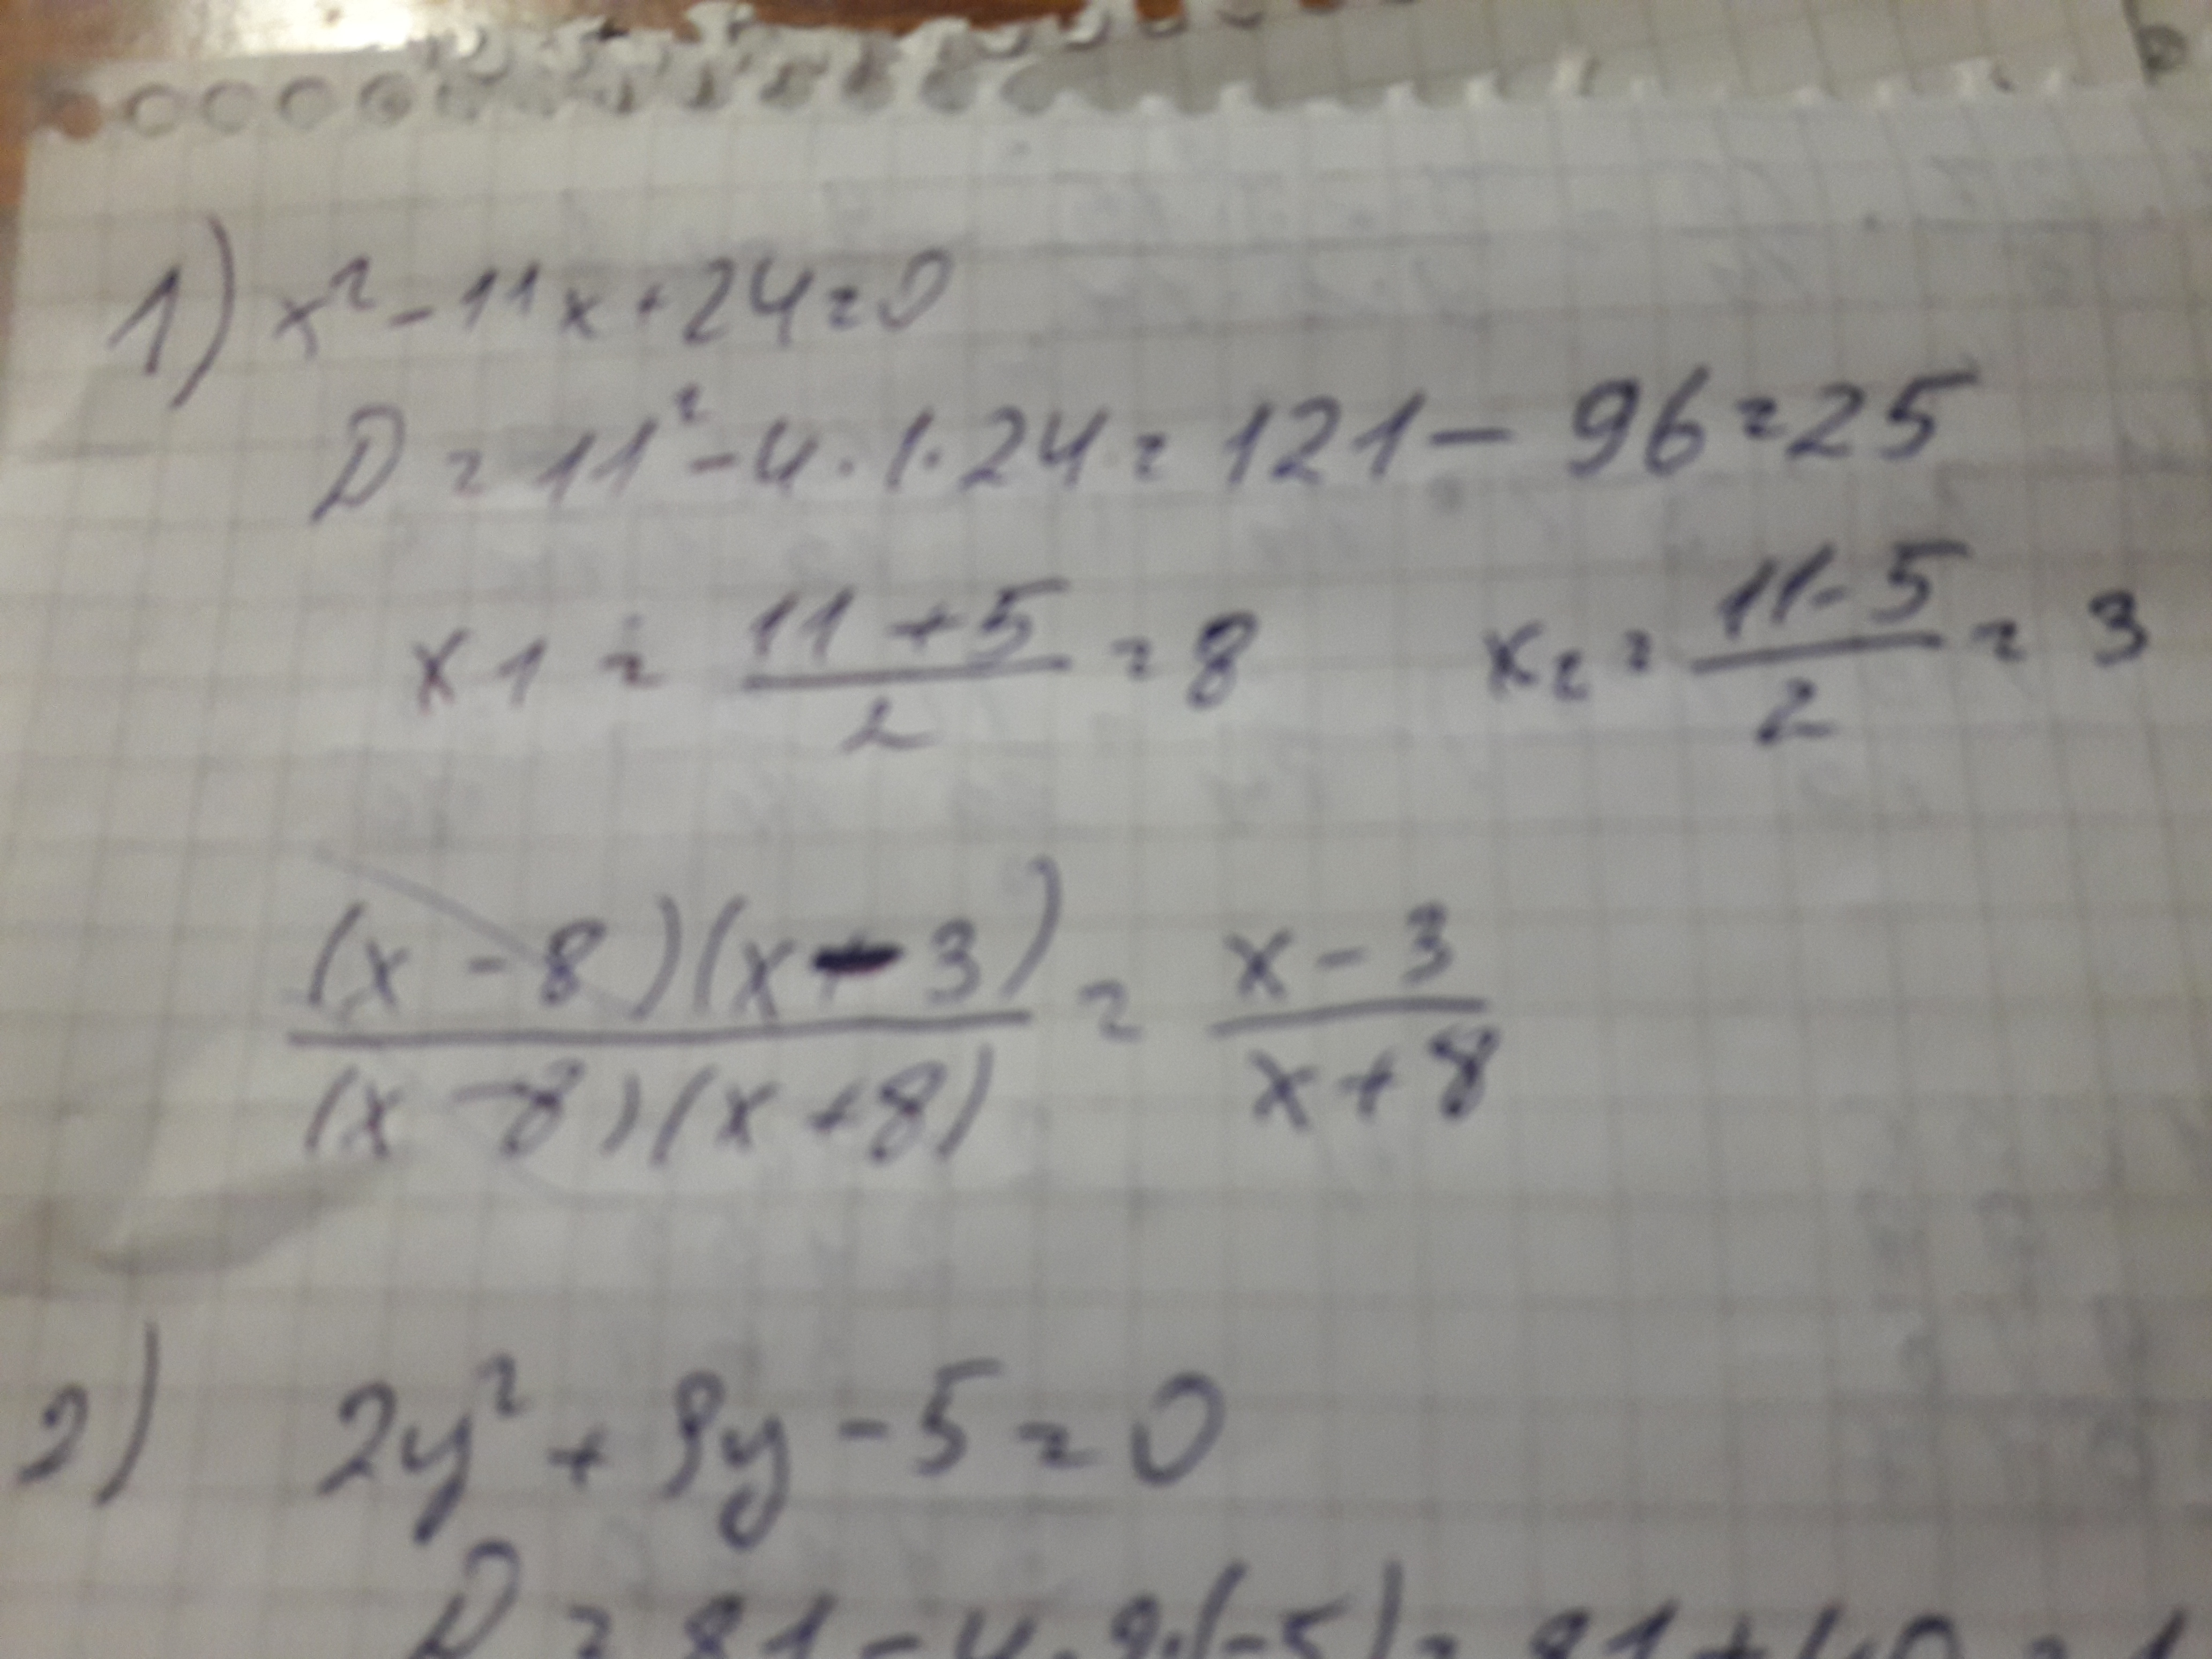 1) x² - 11x + 24 = 0
D = 11² - 4 · 1 · 24 = 121 - 96 = 25
x1 = (11 + 5)/2 = 8   x₂ = (11 - 5)/2 = 3
((x - 8)(x - 3))/((x - 8)(x + 8)) = (x - 3)/(x + 8)
2) 2y² + 9y - 5 = 0
D = 81 - 4 · 2 · (-5) = 81 + 40 =